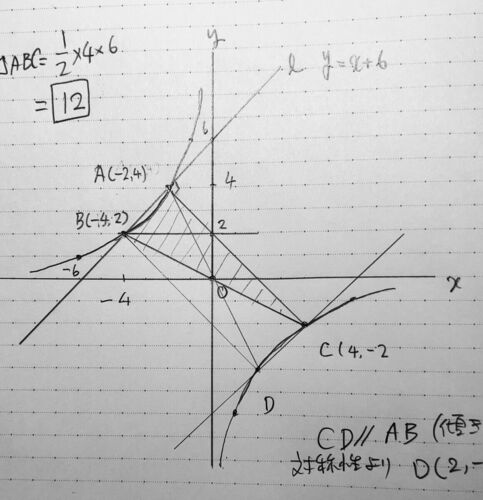 △ABC = 1/2 × 4 × 6
= 12
y
l y = x + 6
6
A(-2,4)
4
B(-4,2)
2
-6
-4
O
x
C(4,-2
D
CD // AB
対称性より D(2,-